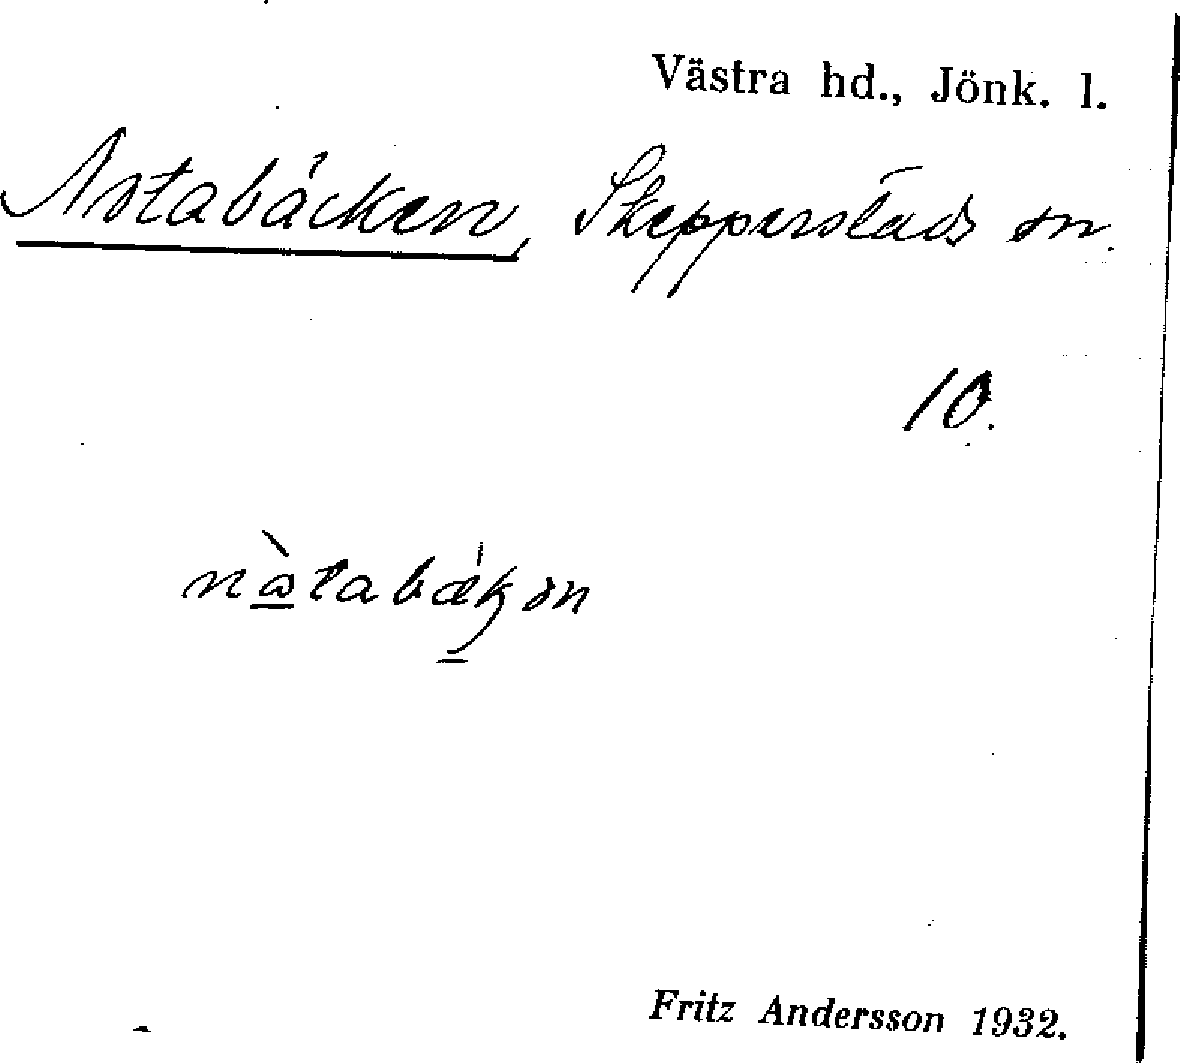 Västra hd., Jönk. l.
Notabäcken, Skepperstads sn.
10.
Fritz Andersson 1932.